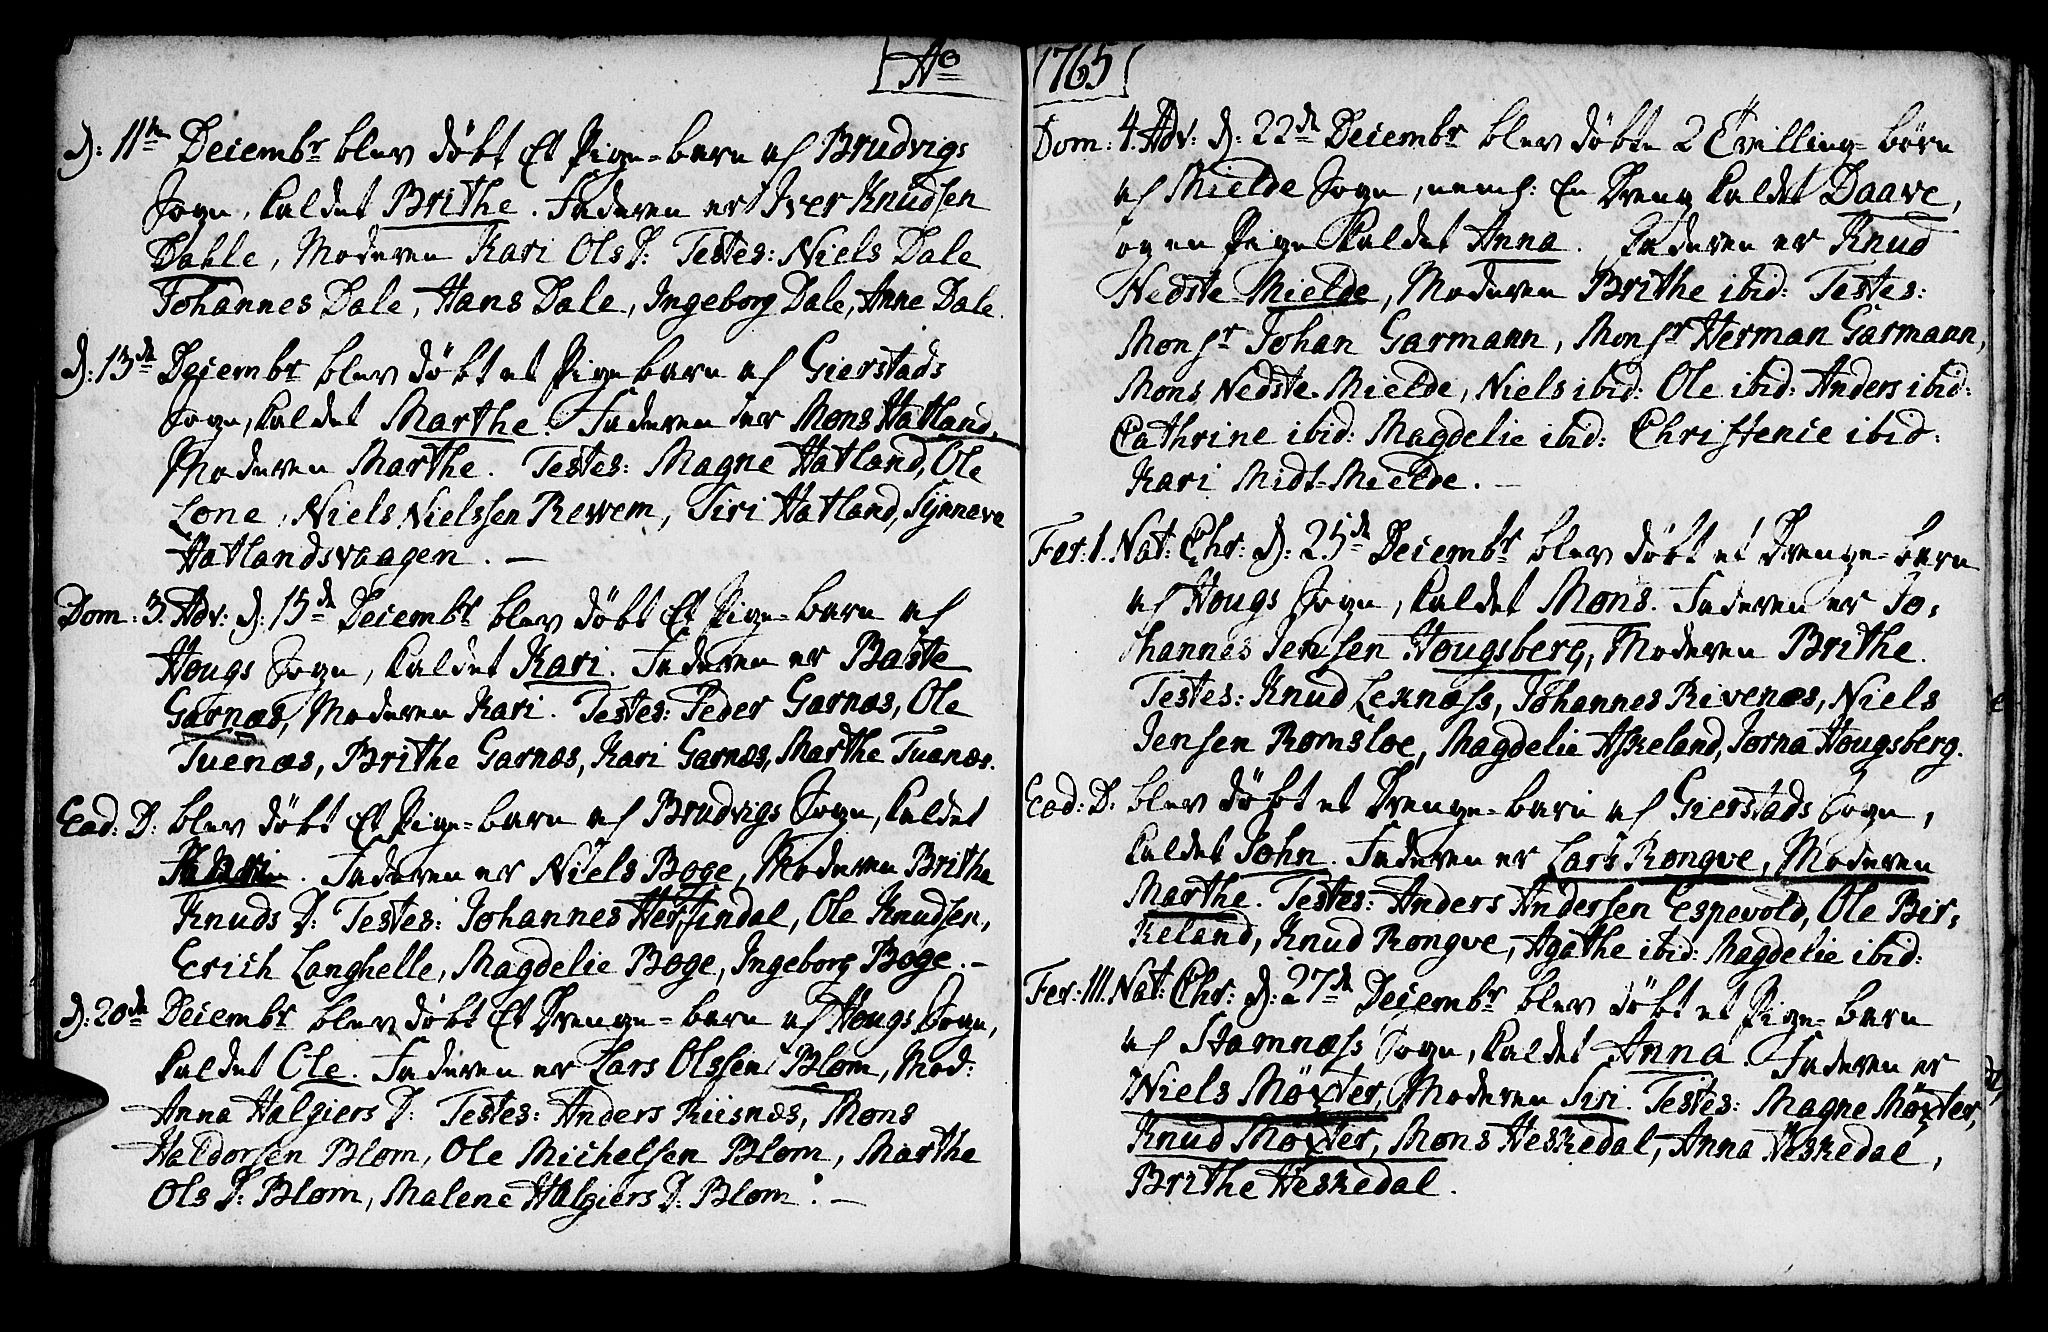 Ao
d: 11te Decembr blev døbt Et Pige-barn af Brudvigs
Sogn, kaldet Brithe. Faderen er Iver Knudsen
Dahle, Moderen Kari Ols D: Testes: Niels Dale
Johannes Dale, Hans Dale, Ingeborg Dale, Anne Dale.
d: 13de Decembr blev døbt et Pige barn af Gierstads
Sogn, kaldet Marthe. Faderen er Mons Hatland,
Moderen Marthe. Testes: Magne Hatland, Ole
Lone, Niels Nielssen Revem, Siri Hatland, Synneve
Hatlandsvaagen. –
Dom: 3. Adv: d: 15de Decembr blev døbt Et Pige-barn af
Hougs Sogn, kaldet Kari. Faderen er Baste
Garnæs, Moderen Kari. Testes: Peder Garnæs, Ole
Tuenæs, Brithe Garnæs, Kari Garnæs, Marthe Tuenæs.
Ead: D: blev døbt Et Pige-barn af Brudvigs Sogn, kaldet
Faderen er Niels Boge, Moderen Brithe
Knuds D: Testes: Johannes Herfindal, Ole Knudsen,
Erich Langhelle, Magdelie Boge, Ingeborg Boge. –
d: 20de Decembr blev døbt Et Drenge-barn af Hougs Sogn,
kaldet Ole. Faderen er Lars Olssen Blom, Mod:
Anna Halgiers D: Testes: Anders Riisnæs, Mons
Haldorsen Blom, Ole Michelsen Blom, Marthe
Ols D: Blom, Malene Halgiers D: Blom. –
1765
Dom: 4. Adv: d: 22de Decembr blev døbte 2 Tvilling-børn
af Mielde Sogn, neml: En Dreng kaldet Daave,
og en Pige kaldet Anna. Faderen er Knud
Nedste Mielde, Moderen Brithe ibid: Testes:
Monsr Johan Garmann, Monsr Herman Garmann,
Mons Nedste-Mielde, Niels ibid: Ole ibid: Anders ibid:
Cathrine ibid: Magdelie ibid: Christence ibid:
Kari Midt-Mielde. –
Fer: 1. Nat: Chr: d: 25de Decembr blev døbt et Drenge-barn
af Hougs Sogn, kaldet Mons. Faderen er Jo,
hannes Jensen Hougsberg, Moderen Brithe.
Testes: Knud Lexnæss, Johannes Rivenæs, Niels
Jensen Romsloe, Magdelie Askeland, Jorna Hougsberg.
Ead: D: blev døbt et Drenge-barn af Gierstads Sogn,
kaldet John. Faderen er Lars Rongve, Moderen
Marthe. Testes: Anders Andersen Espevold, Ole Bir,
keland, Knud Rongve, Agathe ibid: Magdelie ibid:
Fer: III. Nat: Chr: d: 27de Decembr blev døbt et Pige-barn
af Stamnæss Sogn, kaldet Anna. Faderen er
Niels Møxter, Moderen Siri. Testes: Magne Møxter,
Knud Møxter, Mons Heskedal, Anna Heskedal,
Brithe Heskedal.